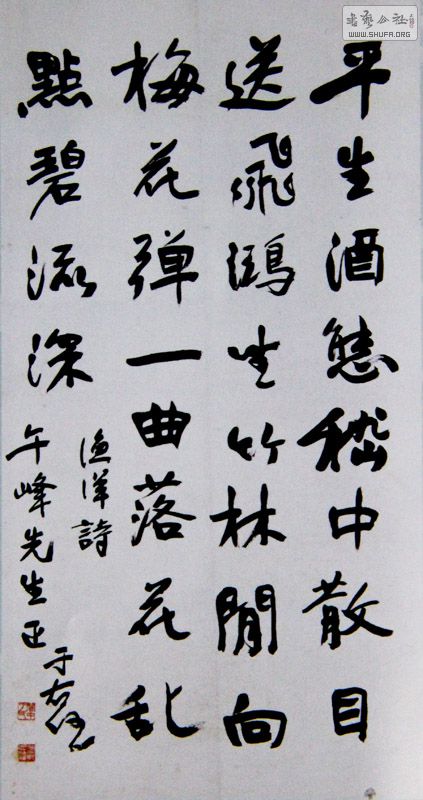 書藝公社
WWW.SHUFA.ORG
平生酒態嵇中散目
送飛鴻坐竹林閒向
梅花弹一曲落花乱
點碧流深
漁洋詩
午峰先生正
于右任